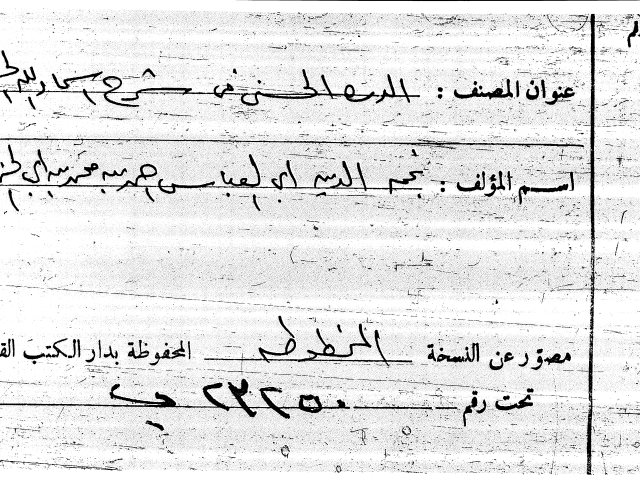 عنوان المصنف : الدرة الحسنى فى شرح اسماء الله
اسم المؤلف : نجم الدين ابى العباس احمد بن محمد بن ابى
مصور عن النسخة المخطوطة المحفوظة بدار الكتب
تحت رقم ٢٣٢٥٠ ب